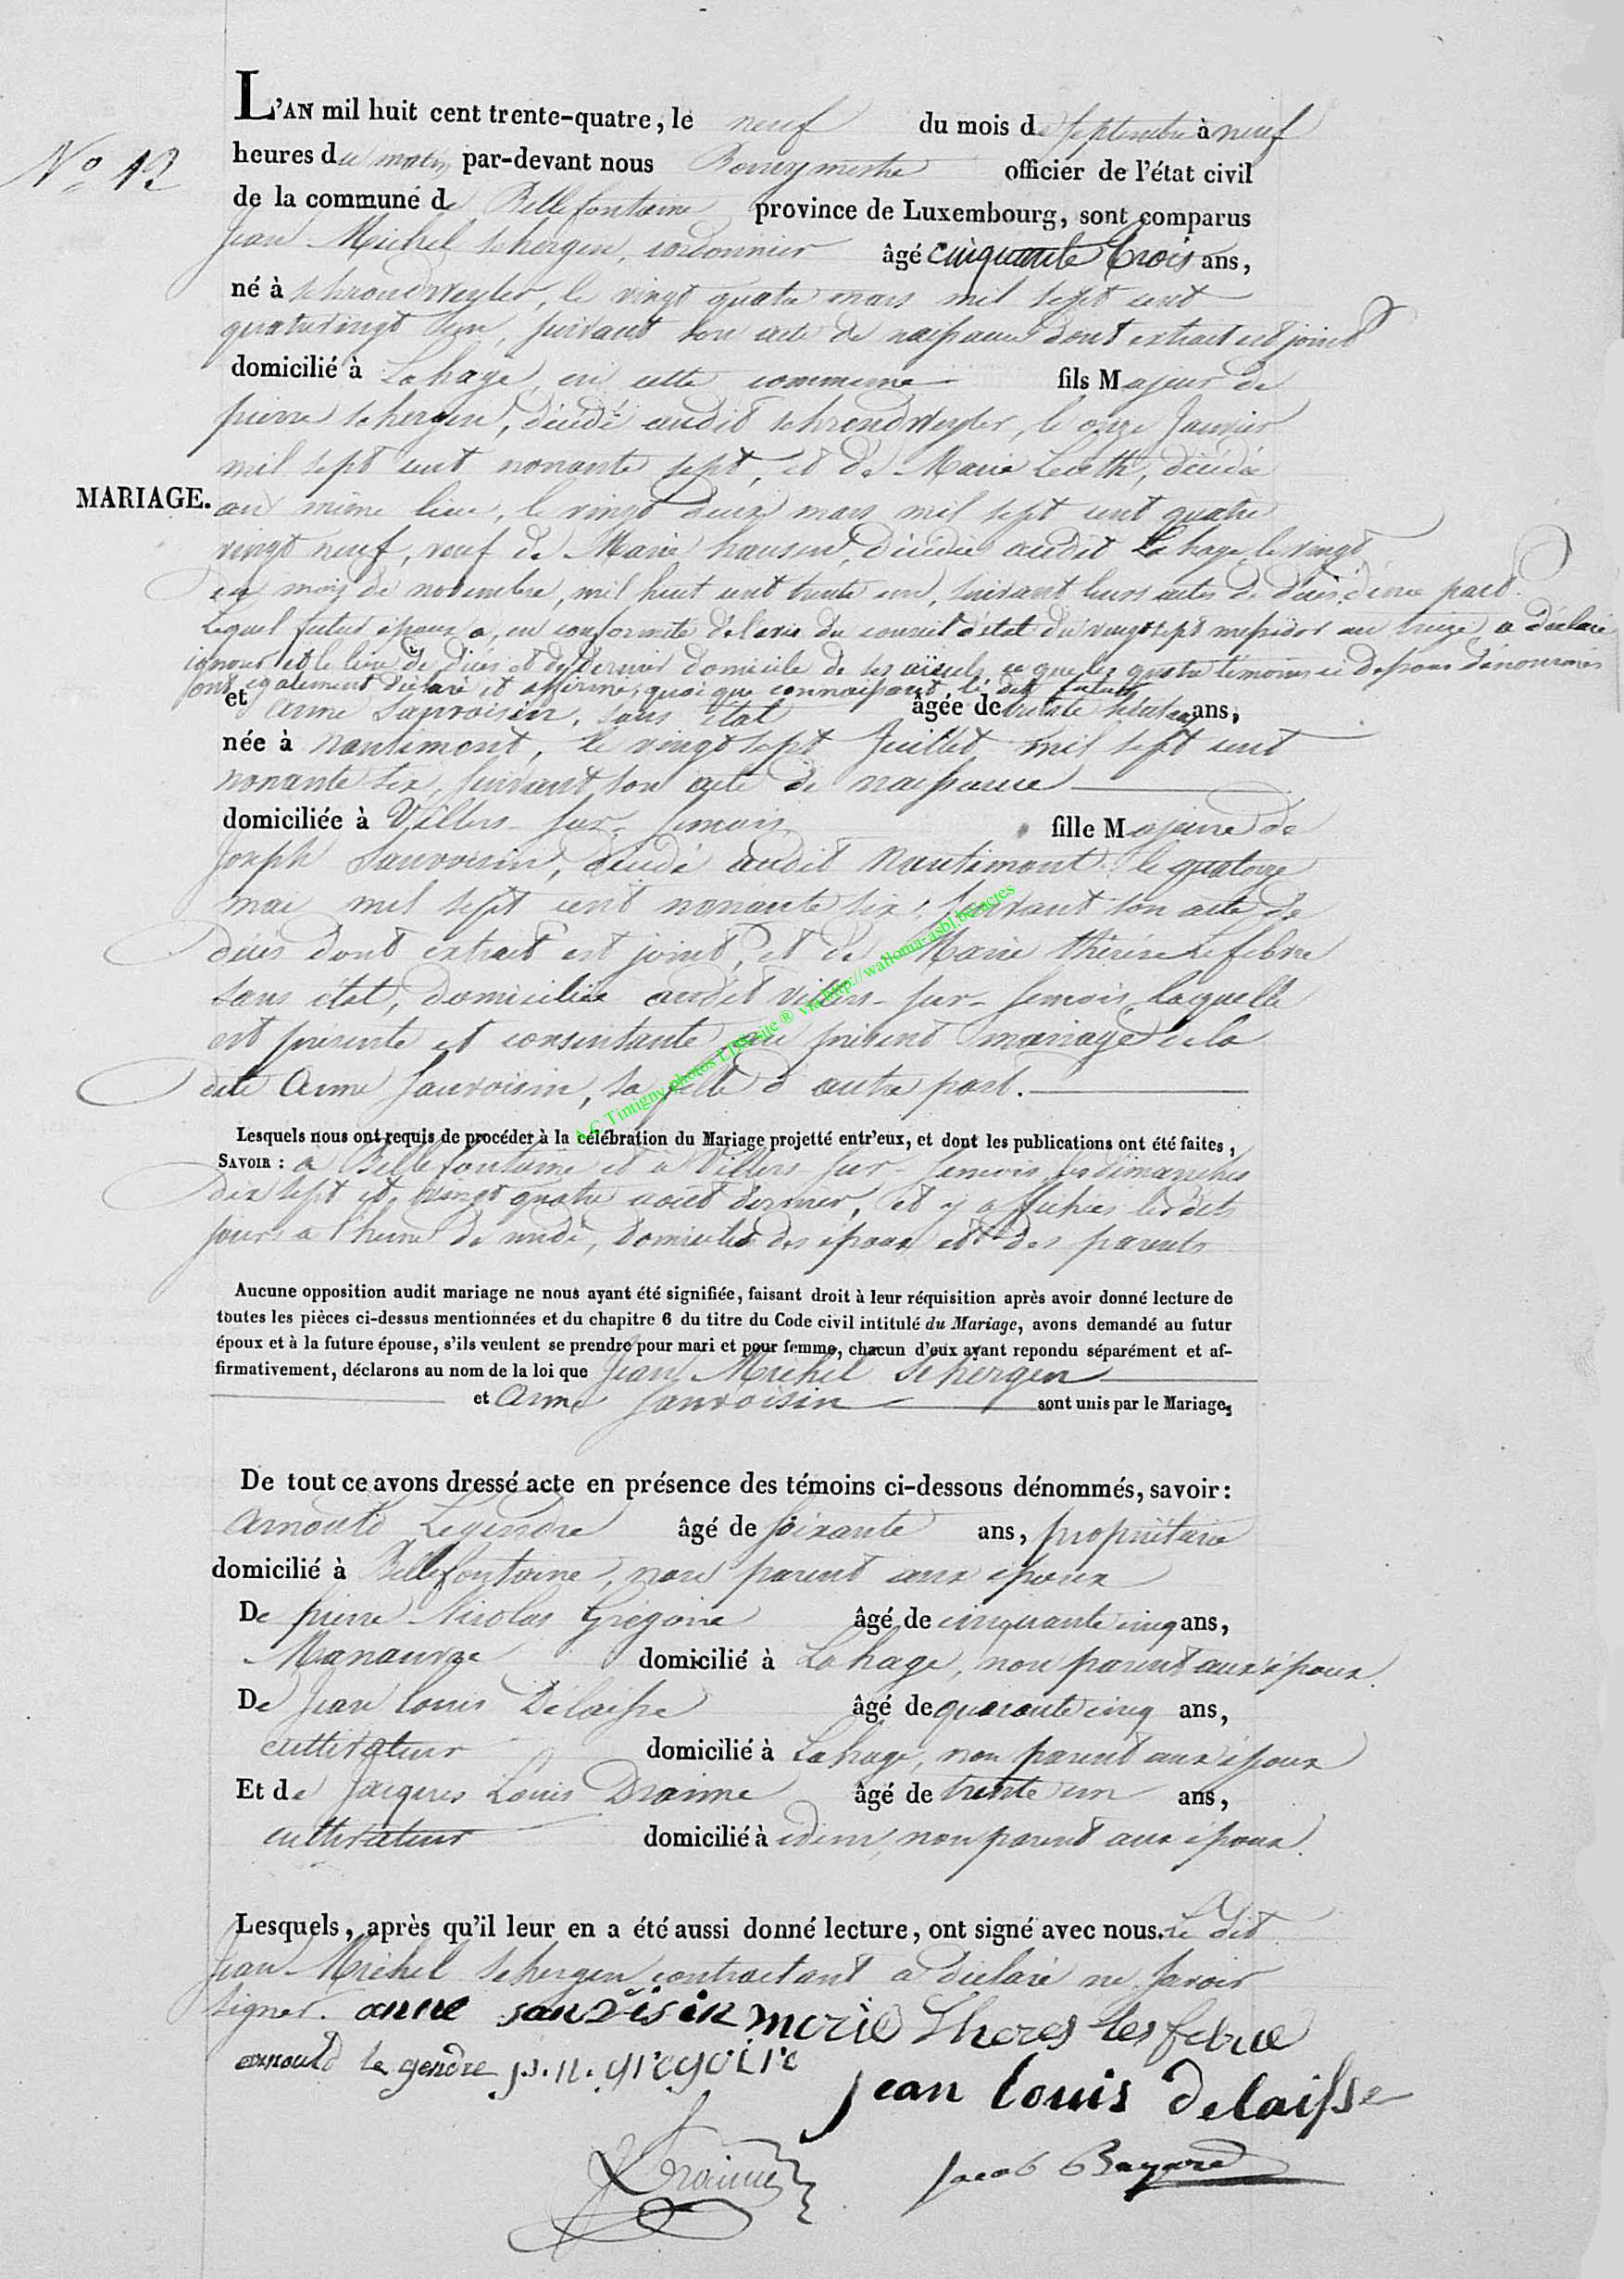 L'AN mil huit cent trente-quatre, le neuf du mois de septembre à neuf
No 12
heures du matin par-devant nous Bourgmestre officier de l'état civil
de la commune de Bellefontaine province de Luxembourg, sont comparus
Jean Michel Schergen, cordonnier âgé cinquante trois ans,
né à Schrondweyler, le vingt quatre mars mil sept cent
quatrevingt un, suivant son acte de naissance dont extrait est joint
domicilié à Lahage, en cette commune fils Majeur de
pierre Schergen, décédé audit Schrondweyler, le onze Janvier
mil sept cent nonante sept, et de Marie décédée
MARIAGE.
au même lieu, le vingt deux mars mil sept cent quatre
vingt neuf, veuf de Marie hausen, décédée audit Lahage le vingt
du mois de novembre, mil huit cent trente un, suivant leurs actes de décès d'une part.
Lequel futur époux a, en conformité de l'avis du conseil d'état du vingt sept messidor an treize, a déclaré
ignorer et le lieu de décès et de dernier domicile de ses aïeuls, ce que les quatre témoins ci dessous dénommés
ont également déclaré et affirmé, quoi que connaissant le dit futur
et anne Sauvoisin, sans état âgée de trente huit ans,
née à Nantimont, le vingt sept Juillet mil sept cent
nonante six, suivant son acte de naissance
domiciliée à Villers-sur-Semois fille Majeure de
Joseph Sauvoisin, décédé audit Nantimont le quatorze
mai mil sept cent nonante six, suivant son acte de
décès dont extrait est joint, et de Marie thérèse Lefebvre
sans état, domiciliée audit Villers-sur-Semois, laquelle
est présente et consentante au présent mariage de la
dite Anne Sauvoisin, sa fille d'autre part.
A.C Tintigny photos LDS site ® via http://walloma-asbl.be/actes
Lesquels nous ont requis de procéder à la célébration du Mariage projetté entr'eux, et dont les publications ont été faites,
SAVOIR : a Bellefontaine et à Villers-sur-Semois, les dimanches
dix sept et vingt quatre août dernier, et y affichées lesdits
jours a l'heure de midi, domiciles des époux et des parents
Aucune opposition audit mariage ne nous ayant été signifiée, faisant droit à leur réquisition après avoir donné lecture de
toutes les pièces ci-dessus mentionnées et du chapitre 6 du titre du Code civil intitulé du Mariage, avons demandé au futur
époux et à la future épouse, s'ils veulent se prendre pour mari et pour femme, chacun d'eux ayant repondu séparément et af-
firmativement, déclarons au nom de la loi que Jean Michel Schergen
et Anne Sauvoisin sont unis par le Mariage,
De tout ce avons dressé acte en présence des témoins ci-dessous dénommés, savoir:
Arnould Legendre âgé de soixante ans, propriétaire
domicilié à Bellefontaine, non parent aux époux
De pierre Nicolas Grégoire âgé de cinquante cinq ans,
Manœuvre domicilié à Lahage, non parent aux époux
De Jean Louis Delaisse âgé de quarante cinq ans,
cultivateur domicilié à Lahage, non parent aux époux
Et de Jacques Louis Draime âgé de trente un ans,
cultivateur domicilié à idem, non parent aux époux.
Lesquels, après qu'il leur en a été aussi donné lecture, ont signé avec nous. Le dit
Jean Michel Schergen contractant a déclaré ne savoir
signer. anne sauvisin merie Theres lesfebue
arnould le gendre p.n. grégoire
jean louis delaisse
Draime
Jacob Bayard